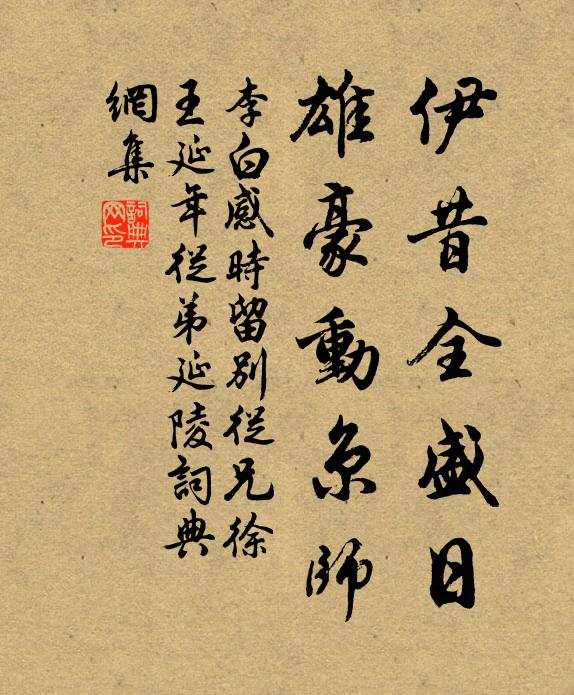 伊昔全盛日
雄豪動京師
李白感時留別從兄徐
王延年從弟延陵詞典
網集
詞典
网印